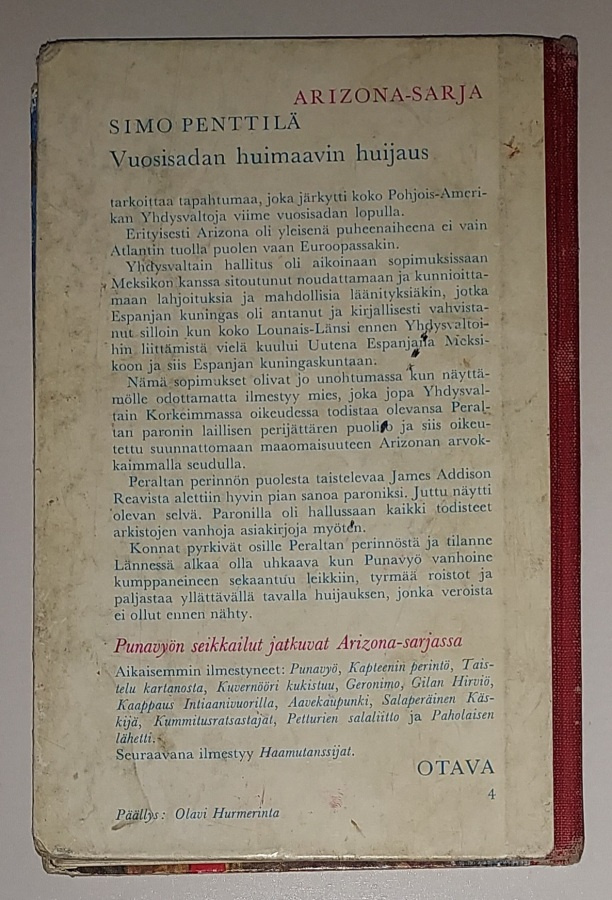 ARIZONA-SARJA
SIMO PENTTILÄ
Vuosisadan huimaavin huijaus
tarkoittaa tapahtumaa, joka järkytti koko Pohjois-Ameri-
kan Yhdysvaltoja viime vuosisadan lopulla.
Erityisesti Arizona oli yleisenä puheenaiheena ei vain
Atlantin tuolla puolen vaan Euroopassakin.
Yhdysvaltain hallitus oli aikoinaan sopimuksissaan
Meksikon kanssa sitoutunut noudattamaan ja kunnioitta-
maan lahjoituksia ja mahdollisia läänityksiäkin, jotka
Espanjan kuningas oli antanut ja kirjallisesti vahvista-
nut silloin kun koko Lounais-Länsi ennen Yhdysvaltoi-
hin liittämistä vielä kuului Uutena Espanjana Meksi-
koon ja siis Espanjan kuningaskuntaan.
Nämä sopimukset olivat jo unohtumassa kun näyttä-
mölle odottamatta ilmestyy mies, joka jopa Yhdysval-
tain Korkeimmassa oikeudessa todistaa olevansa Peral-
tan paronin laillisen perijättären puoliso ja siis oikeu-
tettu suunnattomaan maaomaisuuteen Arizonan arvok-
kaimmalla seudulla.
Peraltan perinnön puolesta taistelevaa James Addison
Reavista alettiin hyvin pian sanoa paroniksi. Juttu näytti
olevan selvä. Paronilla oli hallussaan kaikki todisteet
arkistojen vanhoja asiakirjoja myöten.
Konnat pyrkivät osille Peraltan perinnöstä ja tilanne
Lännessä alkaa olla uhkaava kun Punavyö vanhoine
kumppaneineen sekaantuu leikkiin, tyrmää roistot ja
paljastaa yllättävällä tavalla huijauksen, jonka veroista
ei ollut ennen nähty.
Punavyön seikkailut jatkuvat Arizona-sarjassa
Aikaisemmin ilmestyneet: Punavyö, Kapteenin perintö, Tais-
telu kartanosta, Kuvernööri kukistuu, Geronimo, Gilan Hirviö,
Kaappaus Intiaanivuorilla, Aavekaupunki, Salaperäinen Käs-
kijä, Kummitusratsastajat, Petturien salaliitto ja Paholaisen
lähetti.
Seuraavana ilmestyy Haamutanssijat.
OTAVA
4
Päällys: Olavi Hurmerinta